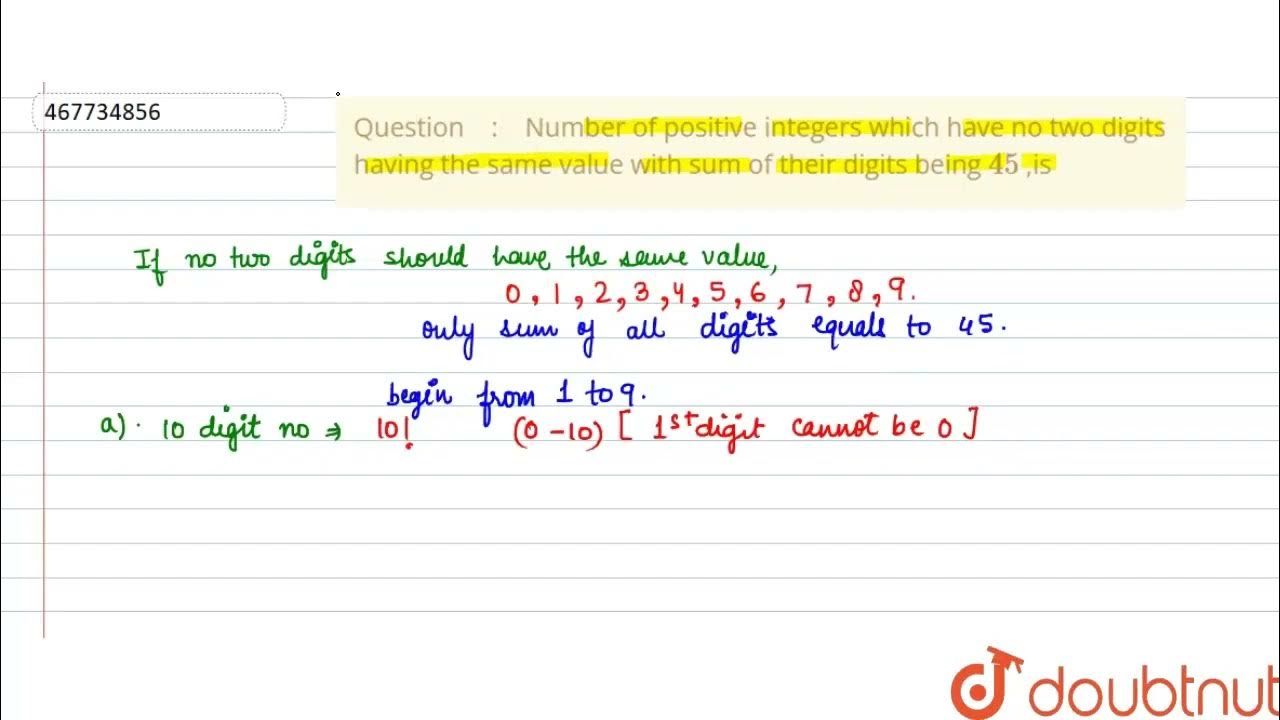 467734856
Question : Number of positive integers which have no two digits
having the same value with sum of their digits being 45 ,is
If no two digits should have the same value,
0, 1, 2, 3, 4, 5, 6, 7, 8, 9.
only sum of all digits equals to 45.
begin from 1 to 9.
a). 10 digit no ⇒ 10! (0-10) [ 1st digit cannot be 0 ]
doubtnut